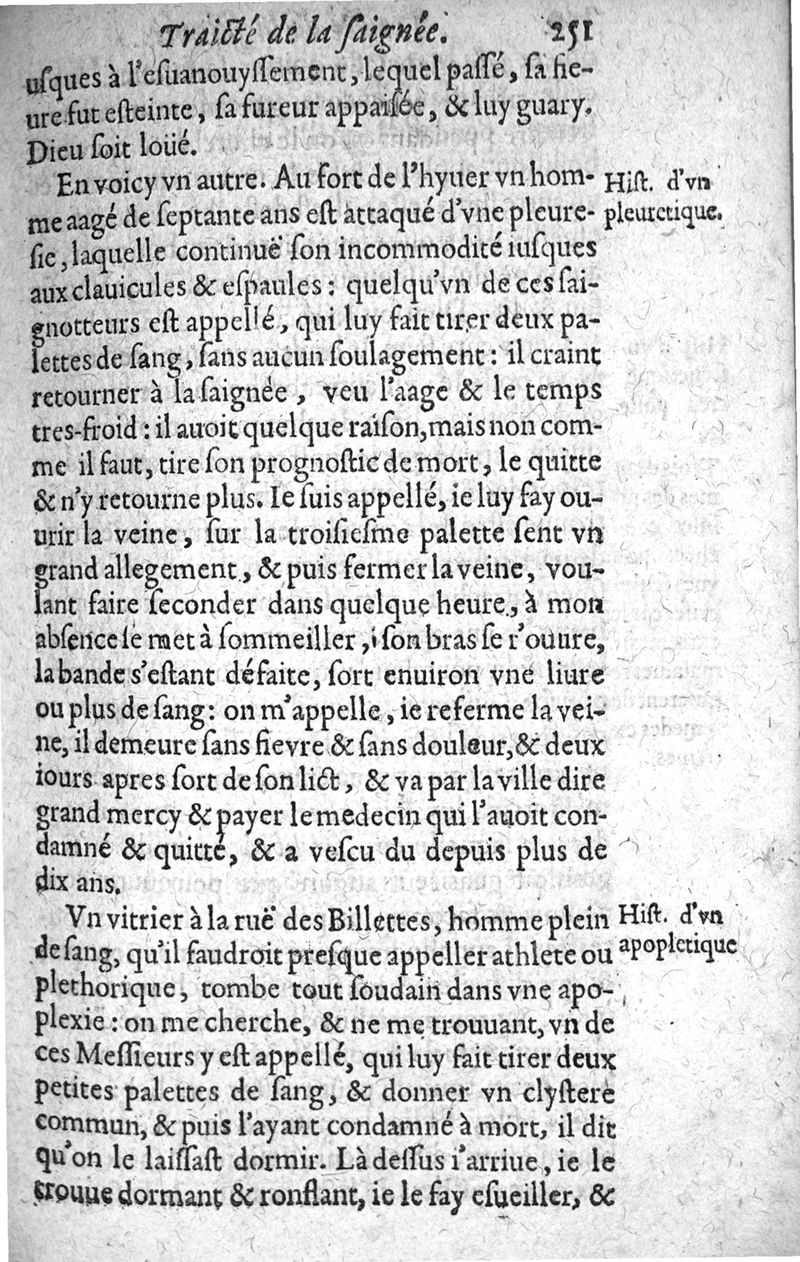 Traicté de la ſaignée. 251
uſques à l'eſuanouyſſement, lequel paſſé, ſa fie-
ure fut eſteinte, ſa fureur appaiſée, & luy guary.
Dieu ſoit loüé.
En voicy vn autre. Au fort de l'hyuer vn hom-
Hiſt. d'vn
me aagé de ſeptante ans eſt attaqué d'vne pleure-
pleuretique.
ſie, laquelle continuë ſon incommodité iuſques
aux clauicules & eſpaules : quelqu'vn de ces ſai-
gnotteurs eſt appellé, qui luy fait tirer deux pa-
lettes de ſang, ſans aucun ſoulagement : il craint
retourner à la ſaignée, veu l'aage & le temps
tres-froid : il auoit quelque raiſon, mais non com-
me il faut, tire ſon prognoſtic de mort, le quitte
& n'y retourne plus. Ie ſuis appellé, ie luy fay ou-
urir la veine, ſur la troiſieſme palette ſent vn
grand allegement, & puis fermer la veine, vou-
lant faire ſeconder dans quelque heure, à mon
abſence ſe met à ſommeiller, ſon bras ſe r'ouure,
la bande s'eſtant défaite, ſort enuiron vne liure
ou plus de ſang : on m'appelle, ie referme la vei-
ne, il demeure ſans fievre & ſans douleur, & deux
iours apres ſort de ſon lict, & va par la ville dire
grand mercy & payer le medecin qui l'auoit con-
damné & quitté, & a veſcu du depuis plus de
dix ans.
Vn vitrier à la ruë des Billettes, homme plein
Hiſt. d'vn
de ſang, qu'il faudroit preſque appeller athlete ou
apopletique
plethorique, tombe tout ſoudain dans vne apo-
plexie : on me cherche, & ne me trouuant, vn de
ces Meſſieurs y eſt appellé, qui luy fait tirer deux
petites palettes de ſang, & donner vn clyſtere
commun, & puis l'ayant condamné à mort, il dit
qu'on le laiſſaſt dormir. Là deſſus i'arriue, ie le
trouue dormant & ronflant, ie le fay eſueiller, &